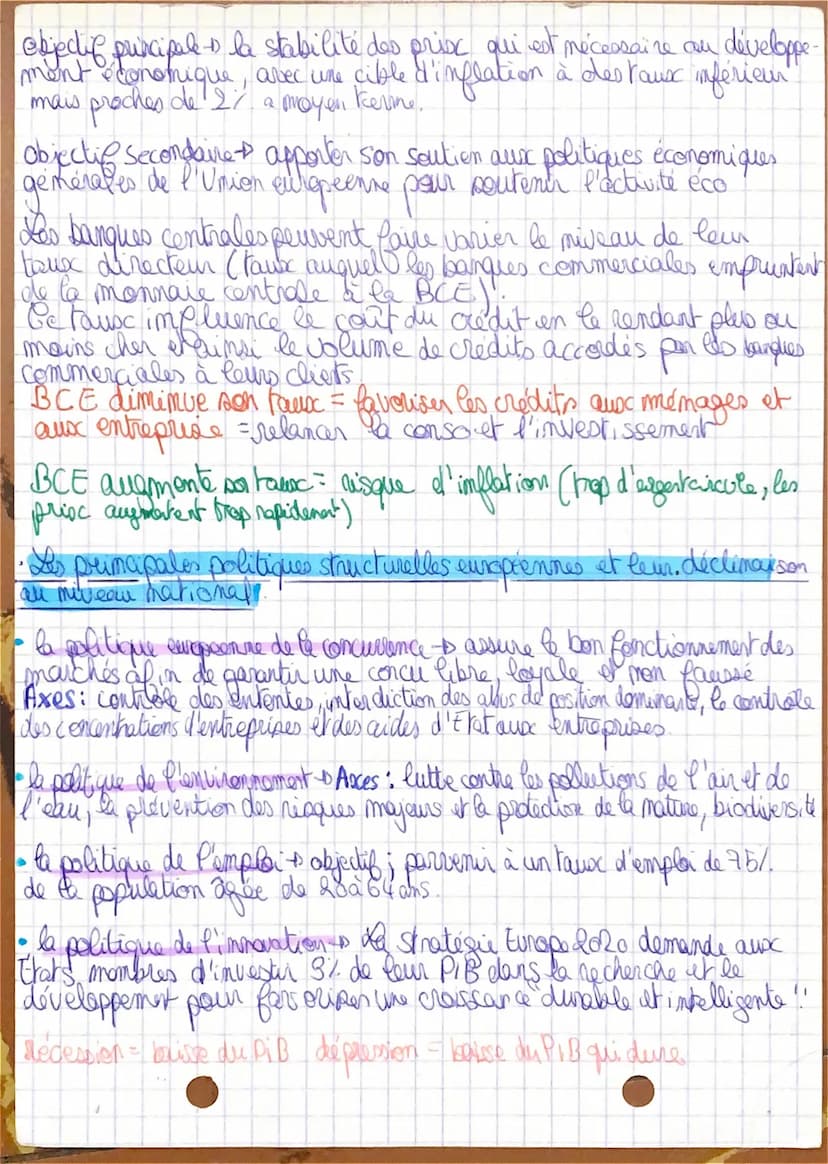 Objectif principale → la stabilité des prix qui est nécessaire au développe-
ment économique, avec une cible d'inflation à des taux inférieur
mais proches de 2% a moyen terme.
Objectif secondaire → apporter son soutien aux politiques économiques
générales de l'Union européenne pour soutenir l'activité éco
Les banques centrales peuvent faire varier le niveau de leur
taux directeur (taux auquel les banques commerciales empruntent
de la monnaie centrale à la BCE).
Ce taux influence le coût du crédit en le rendant plus ou
moins cher et ainsi le volume de crédits accordés par les banques
commerciales à leurs clients
BCE diminue son taux = favoriser les crédits aux ménages et
aux entreprise = relancer la conso et l'investissement
BCE augmente son taux = risque d'inflation (trop d'argent circule, les
prix augmentent trop rapidement)
· Les principales politiques structurelles européennes et leur déclinaison
au niveau national
• la politique européenne de la concurrence → assure le bon fonctionnement des
marchés afin de garantir une concu libre, loyale et non faussé
Axes : contrôle des ententes, interdiction des abus de position dominante, le contrôle
des concentrations d'entreprises et des aides d'Etat aux entreprises.
• la politique de l'environnement → Axes : lutte contre les pollutions de l'air et de
l'eau, la prévention des risques majeurs et la protection de la nature, biodiversité
• la politique de l'emploi → objectif ; parvenir à un taux d'emploi de 75%
de la population âgée de 20 à 64 ans.
• la politique de l'innovation → La stratégie Europe 2020 demande aux
Etats membres d'investir 3% de leur PIB dans la recherche et le
développement pour favoriser une croissance "durable et intelligente".
Récession = baisse du PIB dépression = baisse du PIB qui dure